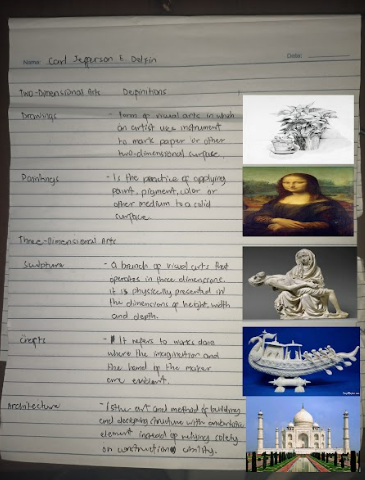 Name: Carl Jefferson E. Dolpin Date:
Two-Dimensional Arts Definitions
Drawings - form of visual arts in which
an artist uses instrument
to mark paper or other
two-dimensional surface.
Paintings - Is the practice of applying
paint, pigment, color or
other medium to a solid
surface.
Three-Dimensional Arts
Sculpture - a branch of visual arts that
operates in three dimensions.
it is physically presented in
the dimensions of height, width
and depth.
Crafts - It refers to works done
where the imagination and
the hand of the maker
are evident.
Architecture - Is the art and method of building
and designing structure with
element instead of relying solely
on construction ability.